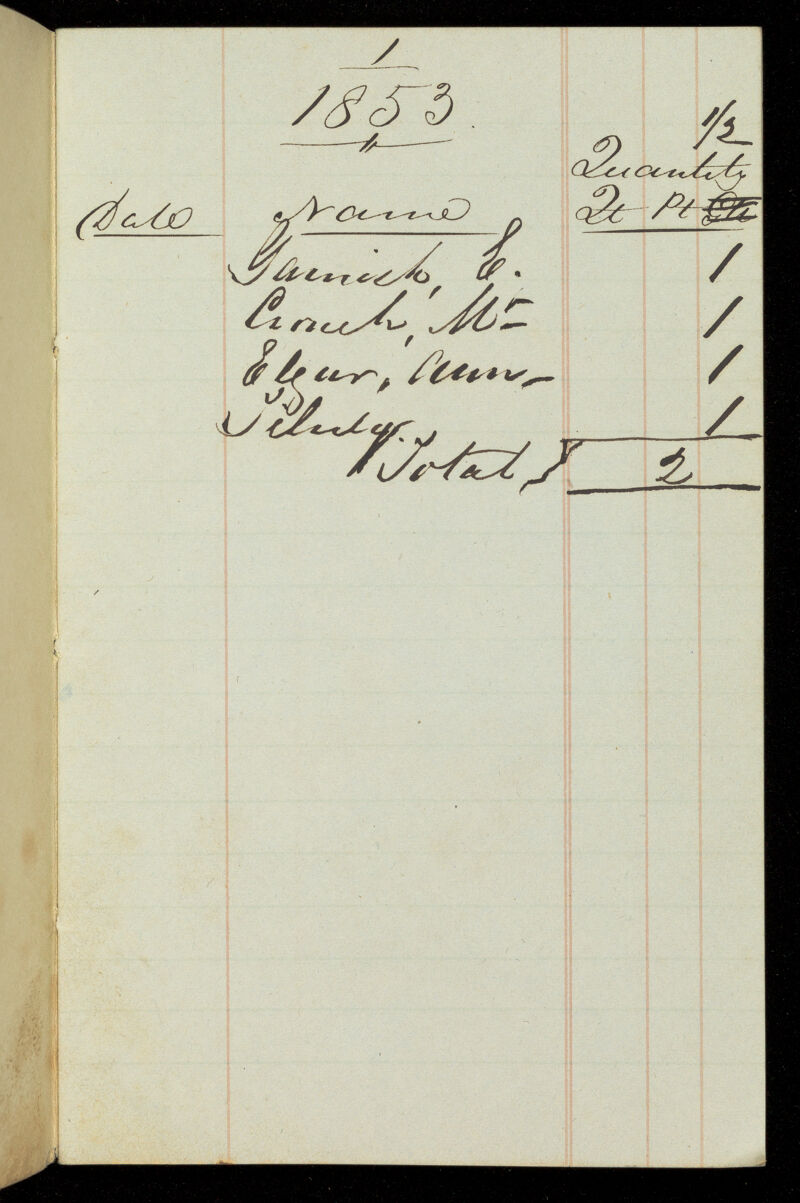 1
1853
1/2
Quantity
Date Name Qt Pt
Garnish, E. 1
Crouch, Mr 1
Elgar, Ann 1
1
Total, 2